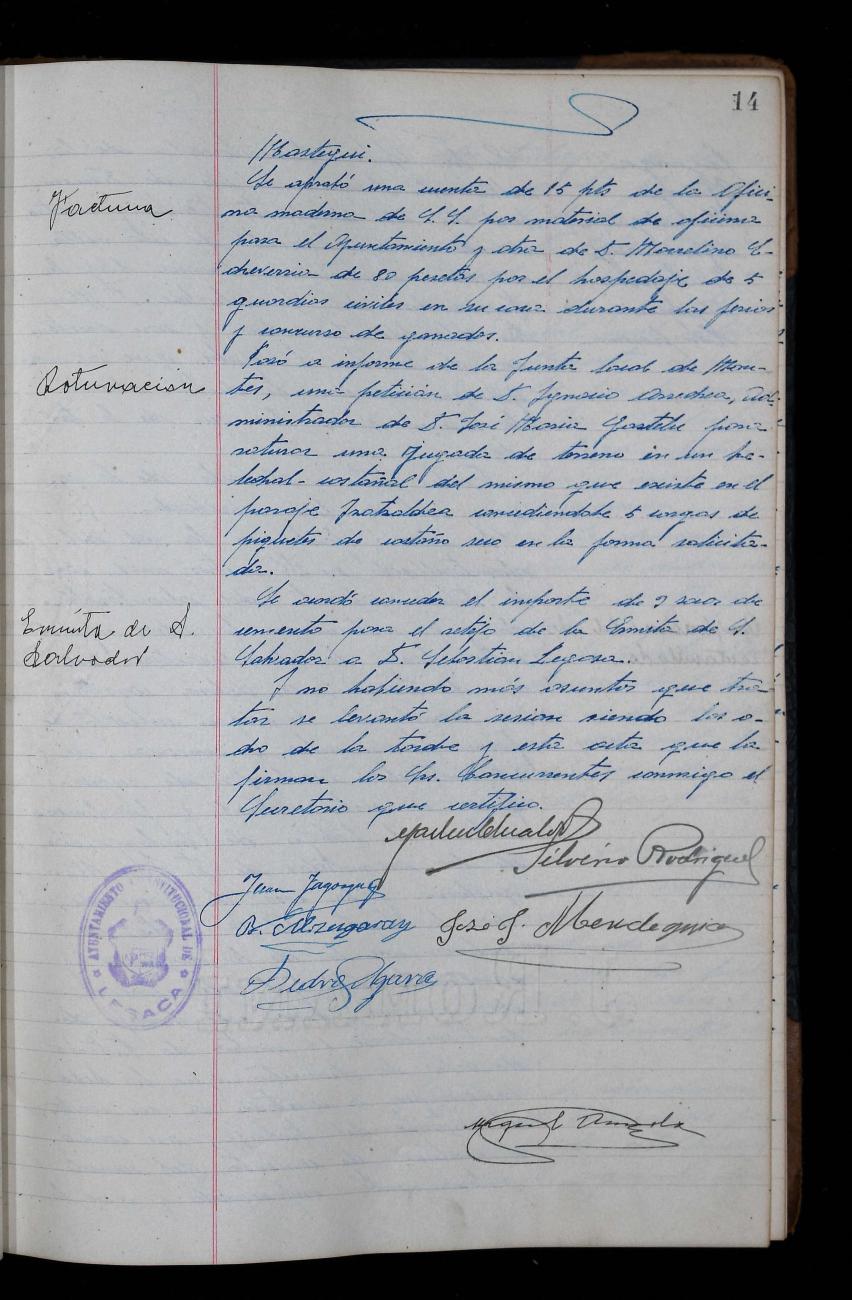 14
Mastegui.
Factura
Se aprobó una cuenta de 15 pts de la Ofici-
na moderna de S.S. por material de oficina
para el Ayuntamiento y otra de D. Marcelino E-
cheverria de 80 pesetas por el hospedaje de 5
guardias civiles en su casa durante las ferias
y concurso de ganados.
Roturación
Pasó a informe de la Junta local de Mon-
tes, una petición de D. Ignacio Arrechea, ad-
ministrador de D. José Maria Gaztelu para
roturar una yugada de terreno en un he-
lechal-castañal del mismo que existe en el
paraje concediendole 5 cargas de
piquetes de castaño seco en la forma solicita-
da.
Ermita de S.
Salvador
Se acordó conceder el importe de 9 sacos de
cemento para el retejo de la Ermita de S.
Salvador a D. Sebastian Legasa.
Y no habiendo más asuntos que tra-
tar se levantó la sesion siendo las o-
cho de la tarde y esta acta que la
firman los Srs. Concurrentes conmigo el
Secretario que certifico.
Silverio Rodriguez
Juan
José J. Mendeguia
Pedro
Miguel
AYUNTAMIENTO CONSTITUCIONAL DE
LESACA